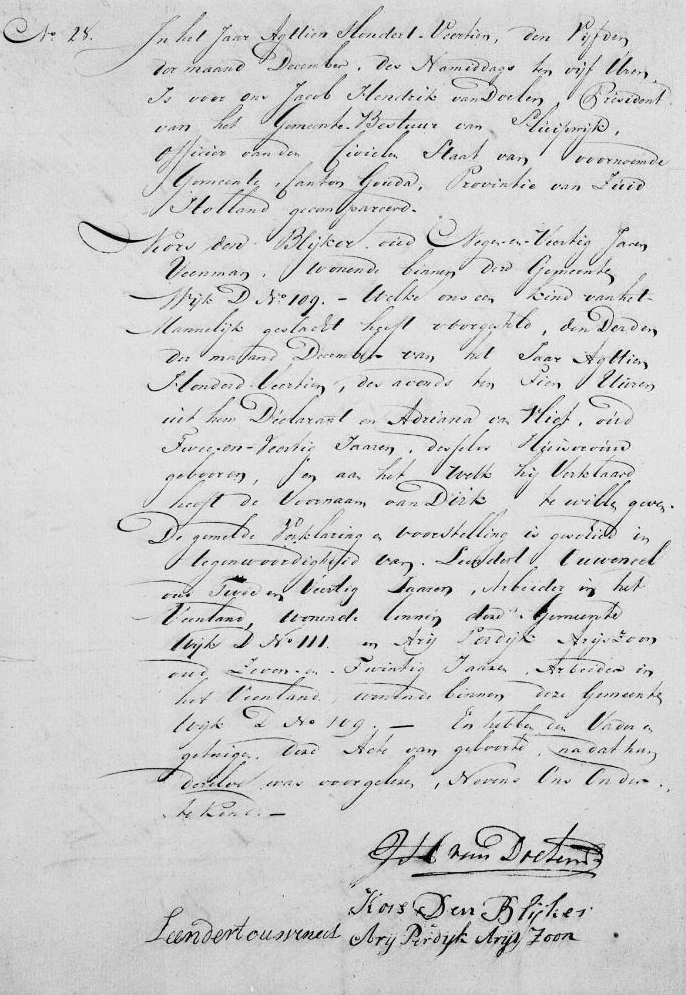 No. 28.
In het Jaar Agttien Hondert-Veertien, den Vijfden
der maand December, des Namiddags ten vijf Uren,
Is voor ons Jacob Hendrik van Doelen, President
van het Gemeente-Bestuur van Sluipwijk,
Officier van den Civielen Staat van voornoemde
Gemeente, Canton Gouda, Provintie van Zuid
Holland gecompareerd.
Kors den Blijker oud Negen-en-Veertig Jaren
Veenman, wonende binnen deze Gemeente
Wijk D No 109. - Welke ons een kind van het
Mannelijk geslacht heeft voorgesteld, den Derden
der maand December van het Jaar Agttien
Honderd-Veertien, des avonds ten Tien Uuren
uit hem Declarant en Adriana van Vliet, oud
Twee-en-Veertig Jaaren, deszelvs Huisvrouw
gebooren, en aan het welk hij Verklaard
heeft de Voornaam van Dirk te willen geven.
De gemelde Verklaring en voorstelling is geschied in
tegenwoordigheid van Leendert Ouweneel
oud Twee en Veertig Jaaren, Arbeider in het
Veenland, wonende binnen deze Gemeente
Wijk D No 111. en Arij Perdijk Arijszoon
oud Zeven-en-Twintig Jaaren, Arbeider in
het Veenland, wonende binnen deze Gemeente
Wijk D No 109. - En hebben den Vader en
getuigen deze Acte van geboorte, na dat hun
dezelve was voorgelezen, Nevens Ons Onder-
tekend. -
JH van Doelen
Kors Den Blijker
Leendert ouweneel Arij Perdijk Arijs Zoon